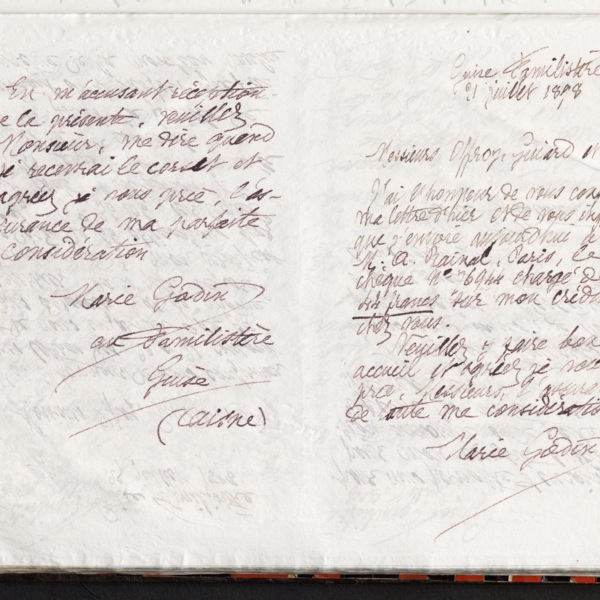 En m'accusant réception
e la présente, veuillez
Monsieur, me dire quand
je recevrai le corset et
agréez je vous prie, l'as-
surance de ma parfaite
considération
Marie Godin
au Familistère
Guise
(Aisne)
Guise Familistère
21 juillet 1898
Messieurs Offroy, Guiard
J'ai l'honneur de vous con
ma lettre d'hier et de vous in
que j'envoie aujourd'hui à
M. A. Rainal, Paris, le
chèque n° 6944 chargé de
francs sur mon crédit
chez vous.
Veuillez y faire bon
accueil et agréez je vous
prie, Messieurs, l'assuran
de toute ma considération
Marie Godin